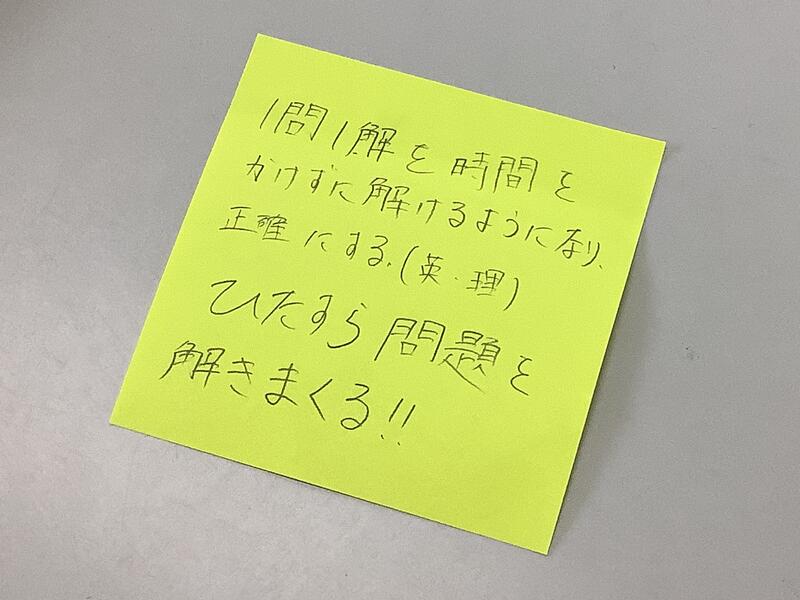 1問1解を時間を
かけずに解けるようになり、
正確にする。(英・理)
ひたすら問題を
解きまくる!!